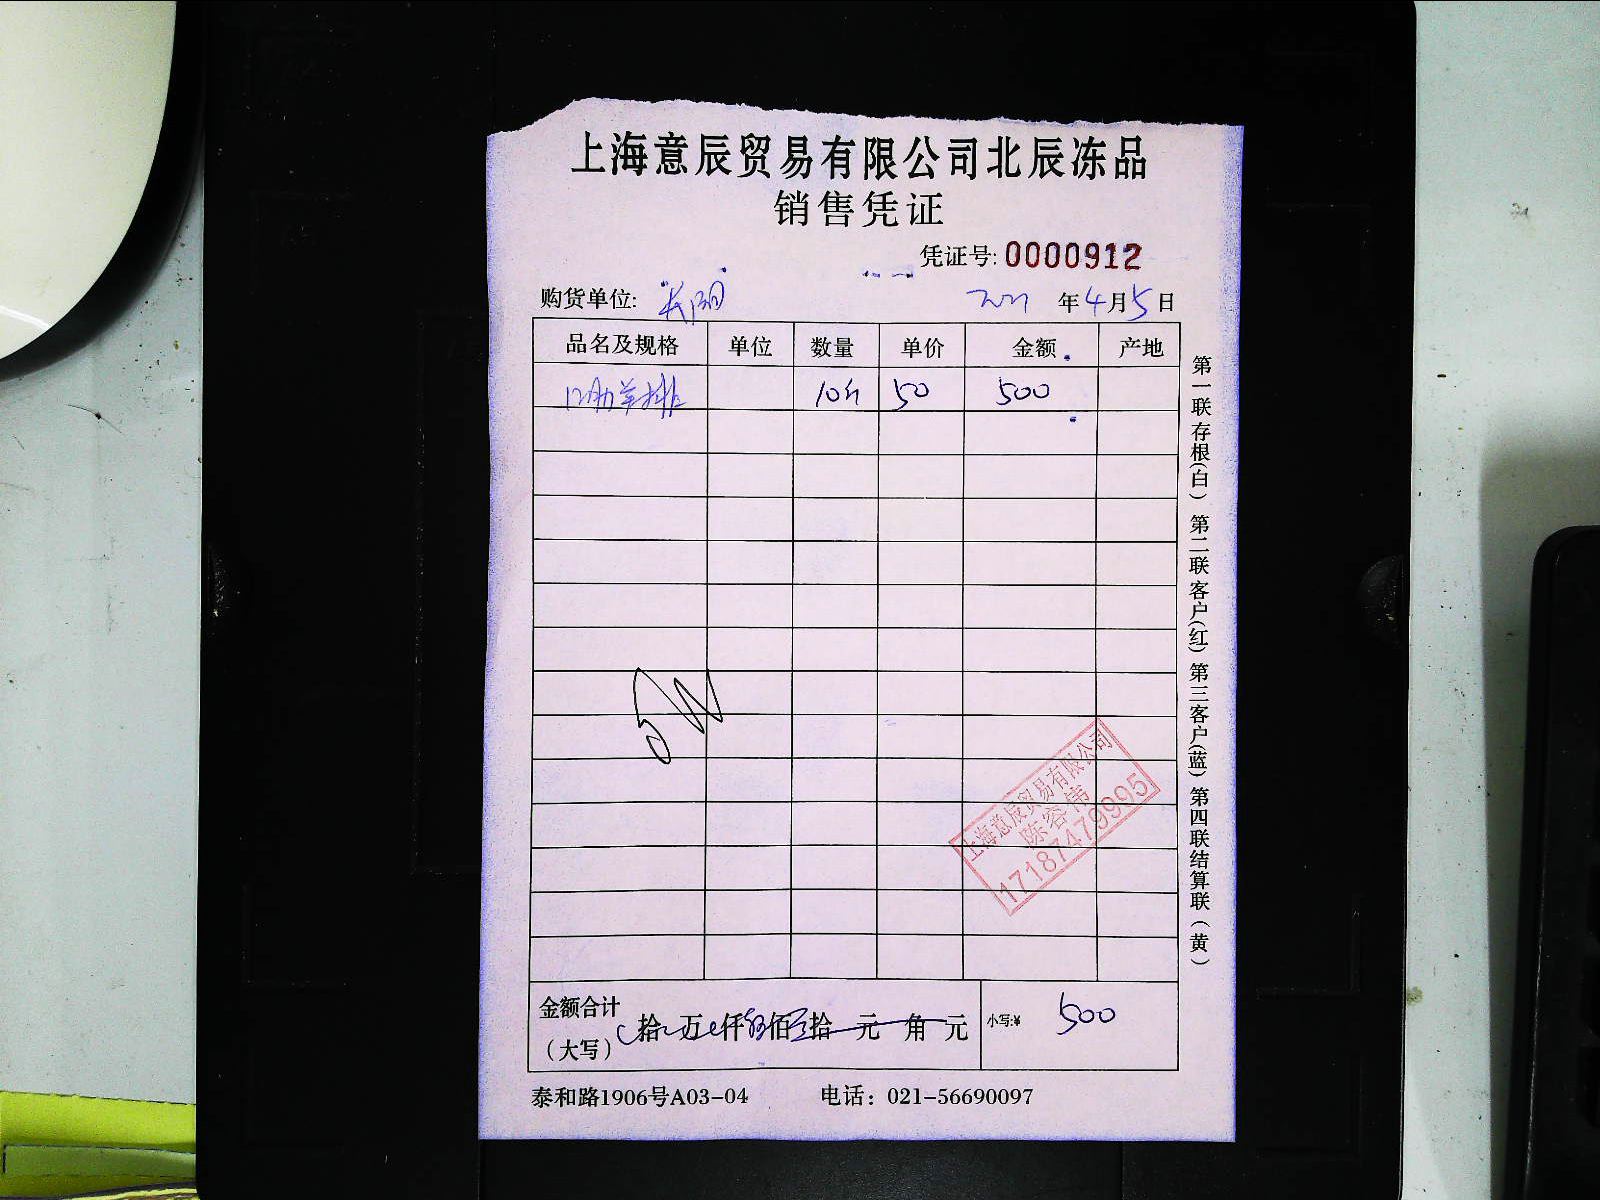 上海意辰贸易有限公司北辰冻品
销售凭证
凭证号: 0000912
购货单位: 长阳 2021 年 4 月 5 日
品名及规格 单位 数量 单价 金额 产地
12肋羊排 10斤 50 500
上海意辰贸易有限公司
陈容伟
17187479995
金额合计
(大写) 拾 万 仟 伍 佰 拾 元 角 元 小写:¥ 500
泰和路1906号A03-04 电话: 021-56690097
第一联存根(白) 第二联客户(红) 第三客户(蓝) 第四联结算联(黄)